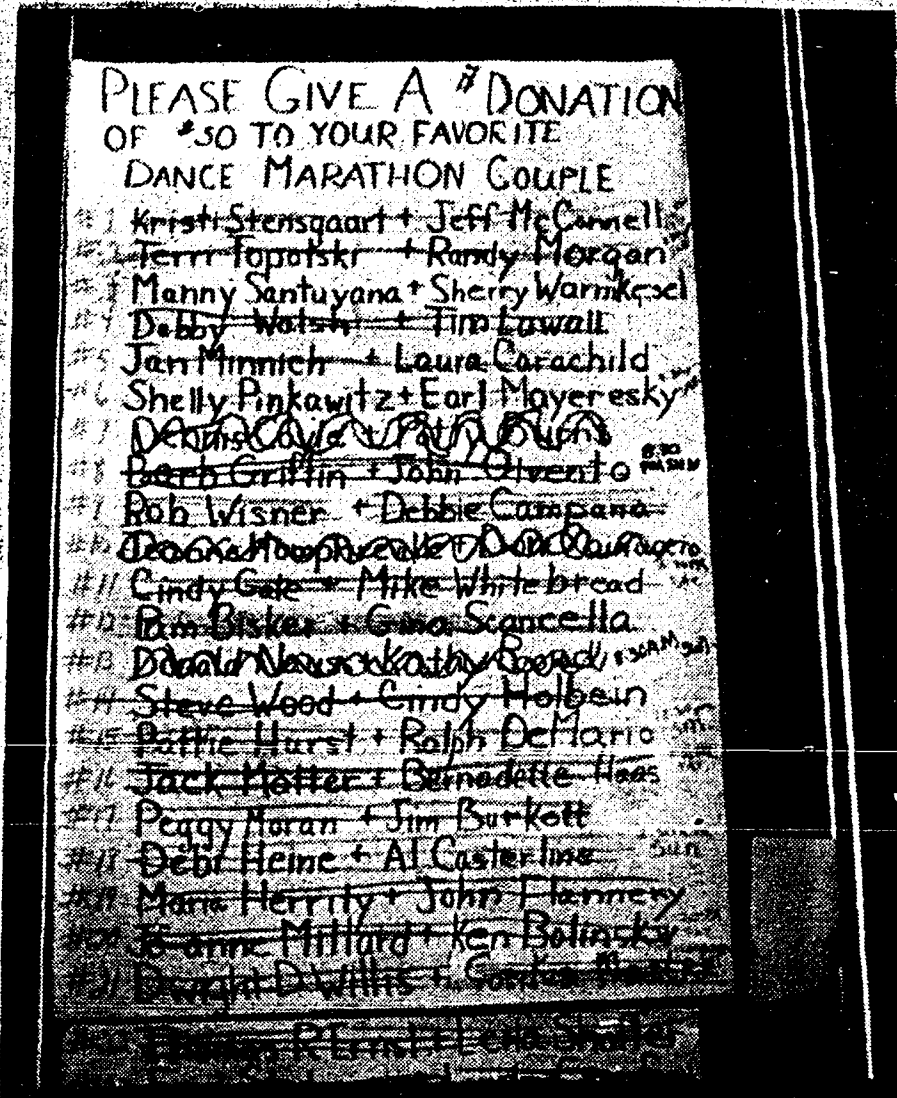 PLEASE GIVE A $ DONATION
OF $50 TO YOUR FAVORITE
DANCE MARATHON COUPLE
#1 Kristi Stensgaart + Jeff McConnell
Terri Topolski + Randy Morgan
Manny Santuyana + Sherry Warnkessel
#4 Debby Walsh + Tim Lawall
#5 Jan Minnich + Laura Carachild
#6 Shelly Pinkawitz + Earl Mayeresky
#7 Dennis Coyle + Patty Burns
#8 Barb Griffin + John Olvento 8:30
#9 Rob Wisner + Debbie Campana
#10
#11 Cindy Gale + Mike Whitebread
#12 Pam Bisker + Gina Scancella
#13 Donald + Kathy 8:30AM Sun
#14 Steve Wood + Cindy Holbein
#15 Pattie Hurst + Ralph DeMario
#16 Jack Hotter + Bernadette Haas
#17 Peggy Moran + Jim Burkett
#18 Debi Heine + Al Casterline Sun
#19 Maria Herrity + John Flannery
#20 Jo-anne Millard + Ken Bolinsky
#21 Dwight D Willis +
Thomas P. Ernst + Lena